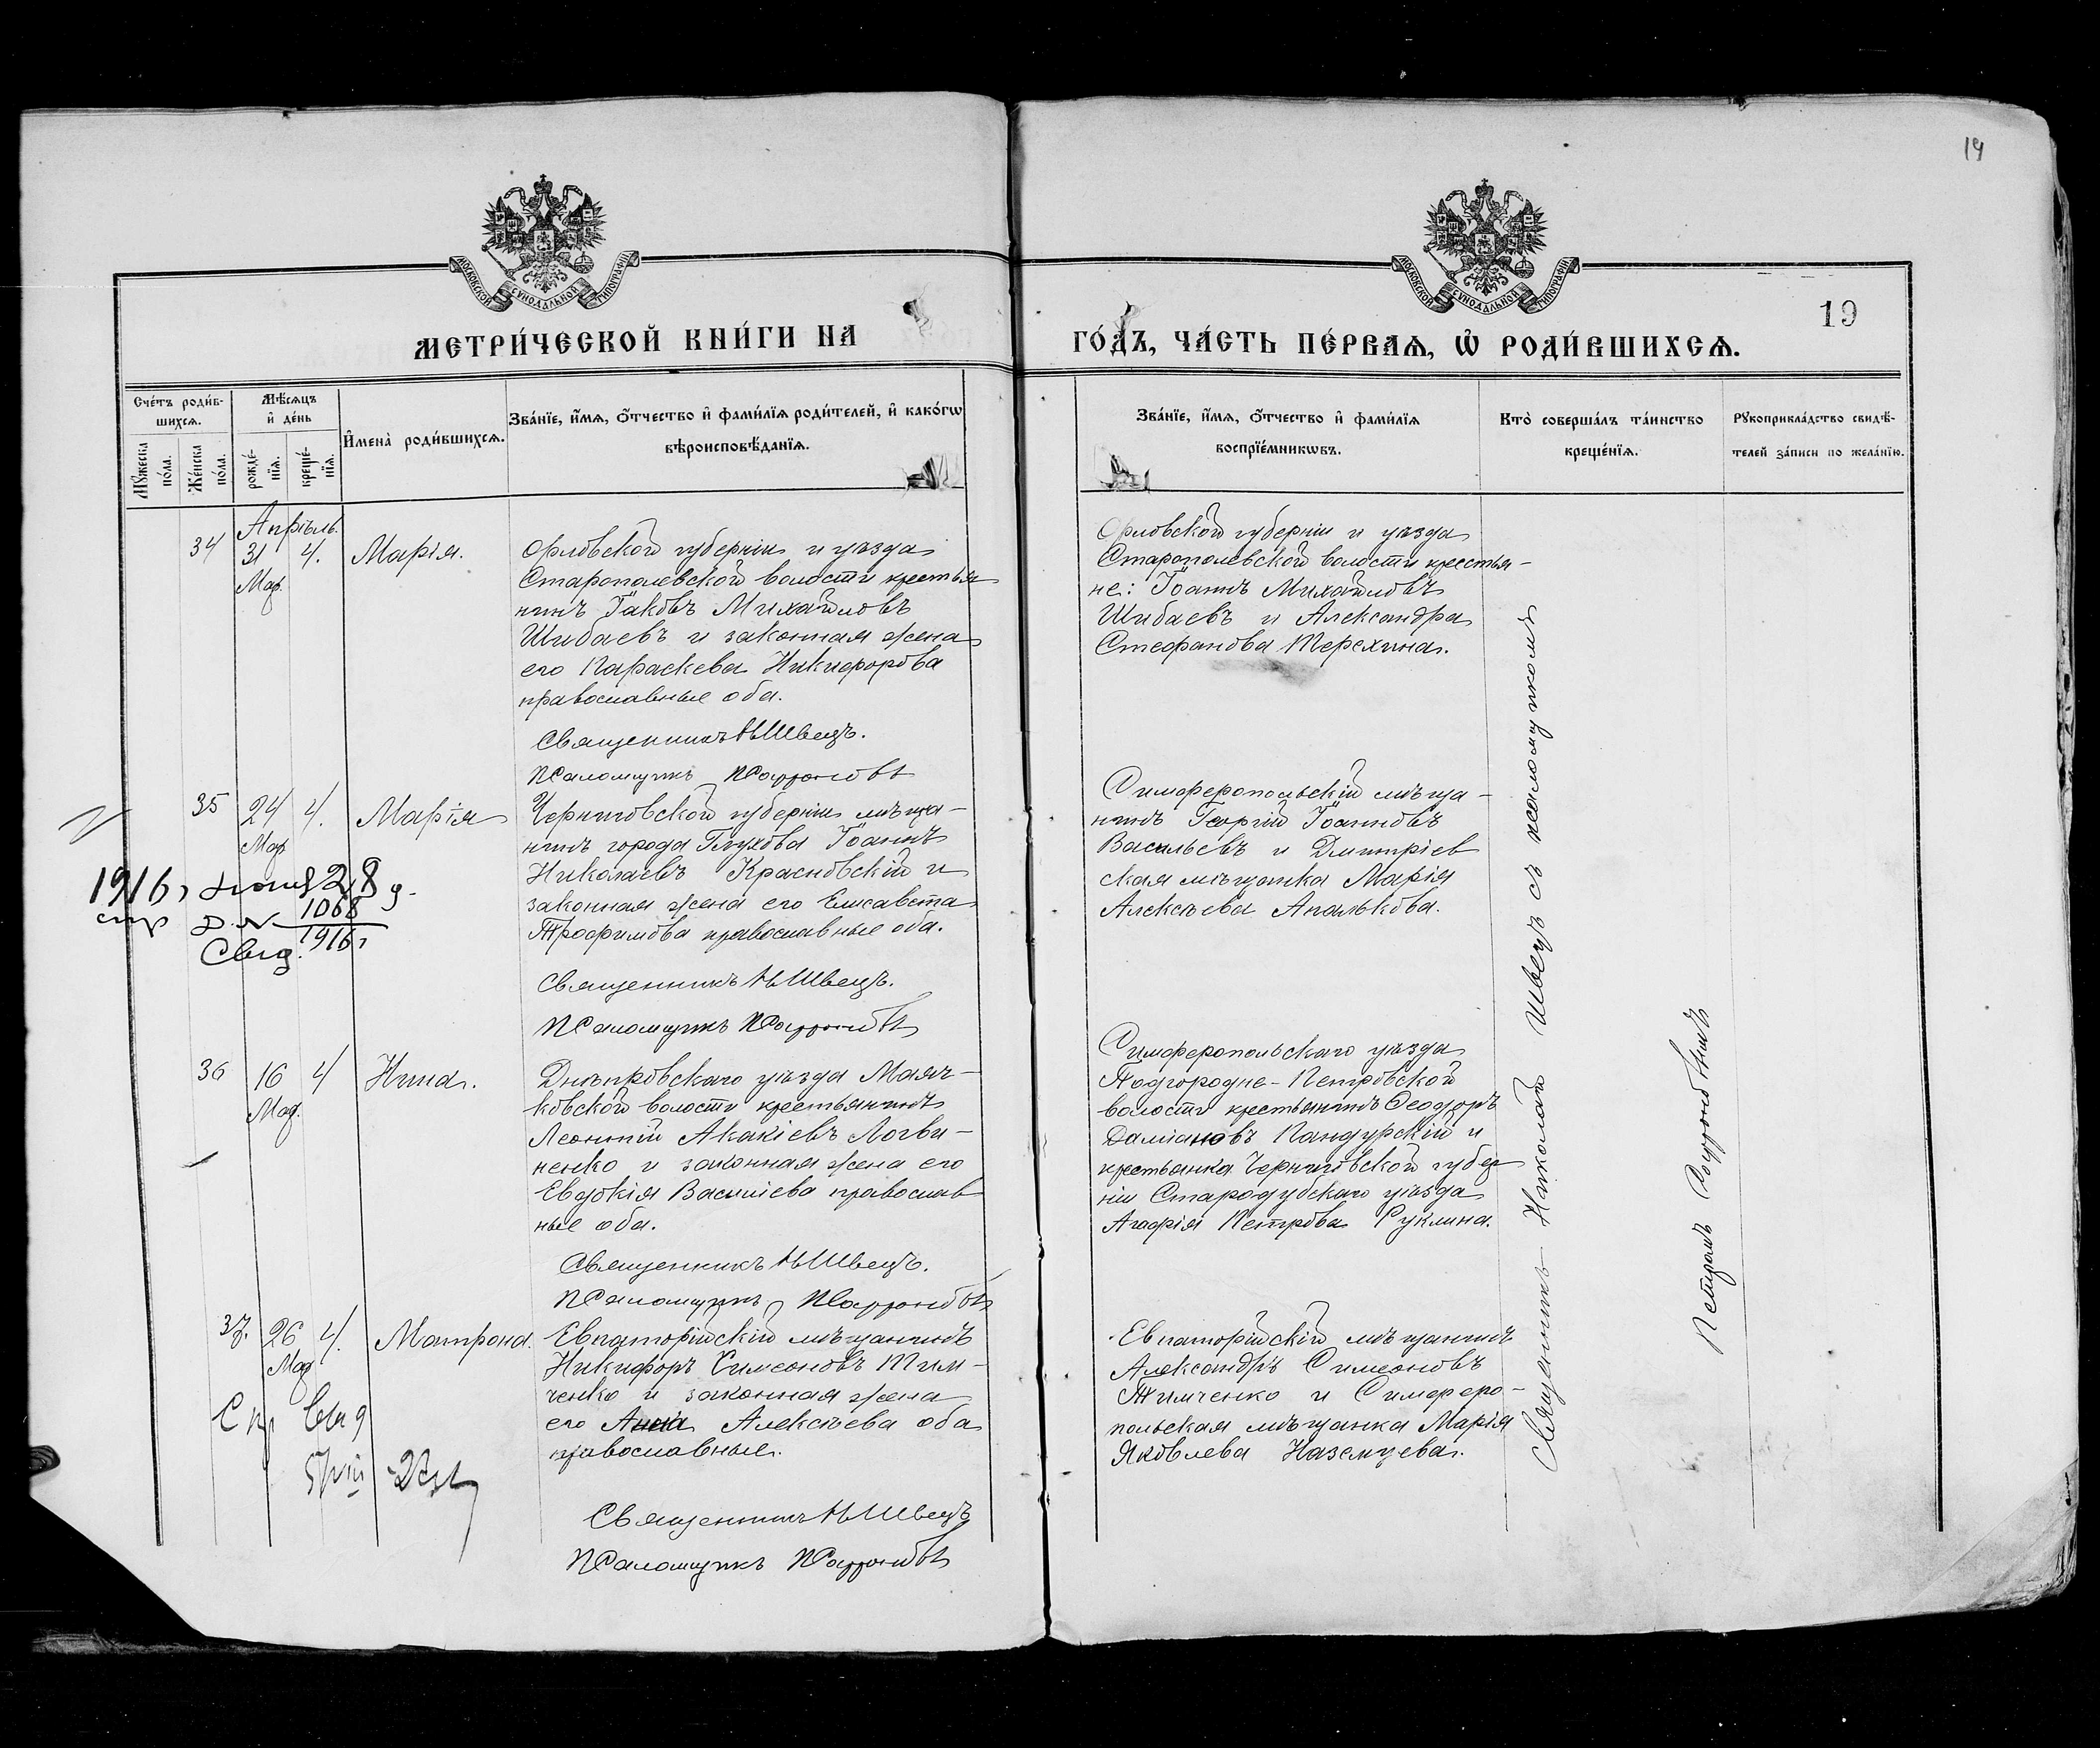 19
МОСКОВСКОЙ СѴНОДАЛЬНОЙ ТИПОГРАФІИ
МОСКОВСКОЙ СѴНОДАЛЬНОЙ ТИПОГРАФІИ
19
МЕТРИ́ЧЕСКОЙ КНИ́ГИ НА
ГО́ДЪ, ЧА́СТЬ ПЕ́РВАѦ, Ѡ҆ РОДИ́ВШИХСѦ.
Сче́тъ роди́в-
шихсѧ.
Мѣ́сѧцъ
и҆ де́нь
Мꙋ́жеска
по́ла.
Же́нска
по́ла.
рожде́-
нїѧ.
креще́-
нїѧ.
И҆мена̀ роди́вшихсѧ.
Зва́нїе, и҆́мѧ, ѻ҆́тчество и҆ фами́лїѧ роди́телей, и҆ како́гѡ
вѣроисповѣ́данїѧ.
Зва́нїе, и҆́мѧ, ѻ҆́тчество и҆ фами́лїѧ
воспрїе́мникѡвъ.
Кто̀ соверша́лъ та́инство
креще́нїѧ.
Рꙋкоприкла́дство свидѣ́-
телей за́писи по жела́нїю.
Апрѣль.
34 31 4. Марія.
Мар.
Орловской губерніи и уѣзда
Старополевской волости крестья
нинъ Іаковъ Михайловъ
Шибаевъ и законная жена
его Параскева Никифорова
православные оба.
Священникъ Н Швецъ.
Псаломщикъ П
Орловской губерніи и уѣзда
Старополевской волости крестья-
не: Іоаннъ Михайловъ
Шибаевъ и Александра
Стефанова Терехина.
35 24 4. Марія
Мар
1916 28
1068
1916 г
Свид.
Черниговской губерніи мѣща-
нинъ города Глухова Іоаннъ
Николаевъ Красновскій и
законная жена его Елисавета
Трофимова православные оба.
Священникъ Н Швецъ.
Псаломщикъ П
Симферопольскій мѣща-
нинъ Георгій Іоанновъ
Васильевъ и Дмитріев
ская мѣщанка Марія
Алексѣева Апалькова.
36 16 4 Нина.
Мар.
Днѣпровскаго уѣзда Маяч-
ковской волости крестьянинъ
Леонтій Акакіевъ Логви-
ненко и законная жена его
Евдокія Василіева православ
ные оба.
Священникъ Н Швецъ.
Псаломщикъ П
Симферопольскаго уѣзда
Подгородне-Петровской
волости крестьянинъ Ѳеодоръ
Даміановъ Пандурскій и
крестьянка Черниговской губер
ніи Стародубскаго уѣзда
Агафія Петрова Руклина.
37. 26 4. Матрона.
Мар
Евпаторійскій мѣщанинъ
Никифоръ Симеоновъ Тим-
ченко и законная жена
его Анна Алексѣева оба
православные.
Священникъ Н Швецъ
Псаломщикъ П
Евпаторійскій мѣщанинъ
Александръ Симеоновъ
Тимченко и Симферо-
польская мѣщанка Марія
Яковлева Наземцева.
Священникъ Николай Швецъ съ псаломщикомъ
Петромъ